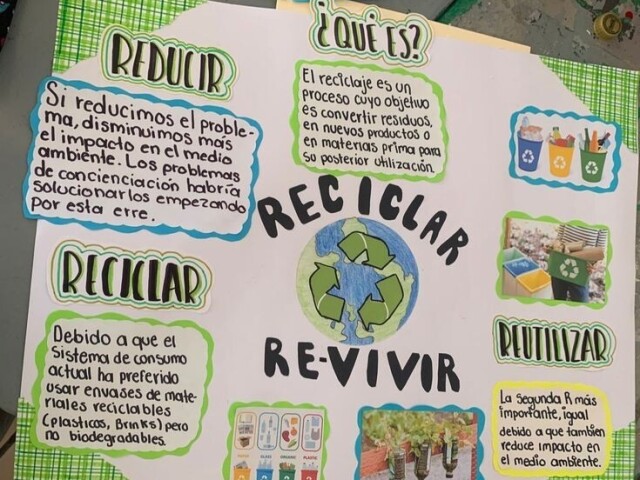 ¿QUÉ ES?
El reciclaje es un
proceso cuyo objetivo
es convertir residuos,
en nuevos productos o
en materias prima para
so posterior utilización.
REDUCIR
Si reducimos el proble-
ma, disminuimos mas
el impacto en el medio
ambiente. Los problemas
de concienciación habría
solucionarlos empezando
por esta erre.
RECICLAR
RE-VIVIR
RECICLAR
Debido a que el
Sistema de consumo
actual ha preferido
usar envases de mate-
riales reciclables
(plasticos, Brinks) pero
no biodegradables.
REUTILIZAR
La segunda R más
importante, igual
debido a que tambien
reduce impacto en
el medio ambiente.